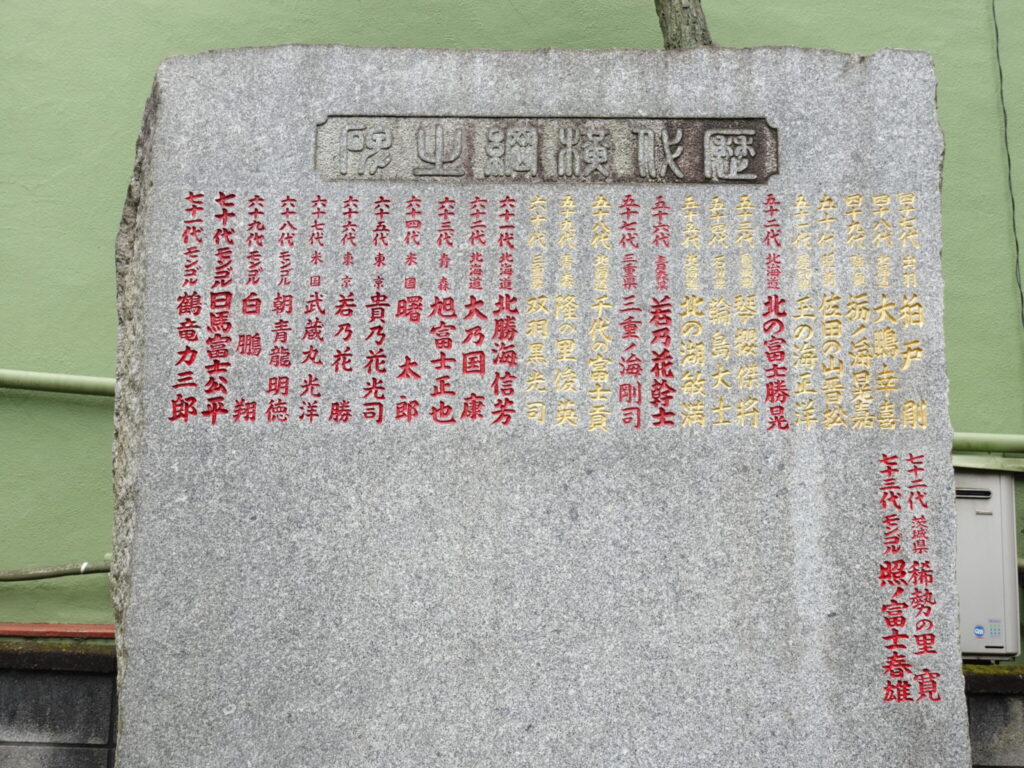 歴代横綱之碑
四十七代 山形 柏戸 剛
四十八代 北海道 大鵬幸喜
四十九代 青森 栃ノ海晃嘉
五十代 長崎県 佐田の山晋松
五十一代 愛知県 玉の海正洋
五十二代 北海道 北の富士勝晃
五十三代 鳥取県 琴櫻傑将
五十四代 石川県 輪島大士
五十五代 北海道 北の湖敏満
五十六代 青森県 若乃花幹士
五十七代 三重県 三重ノ海剛司
五十八代 北海道 千代の富士貢
五十九代 青森 隆の里俊英
六十代 三重県 双羽黒光司
六十一代 北海道 北勝海信芳
六十二代 北海道 大乃国 康
六十三代 青森 旭富士正也
六十四代 米国 曙 太郎
六十五代 東京 貴乃花光司
六十六代 東京 若乃花 勝
六十七代 米国 武蔵丸光洋
六十八代 モンゴル 朝青龍明徳
六十九代 モンゴル 白鵬 翔
七十代 モンゴル 日馬富士公平
七十一代 モンゴル 鶴竜力三郎
七十二代 茨城県 稀勢の里 寛
七十三代 モンゴル 照ノ富士春雄